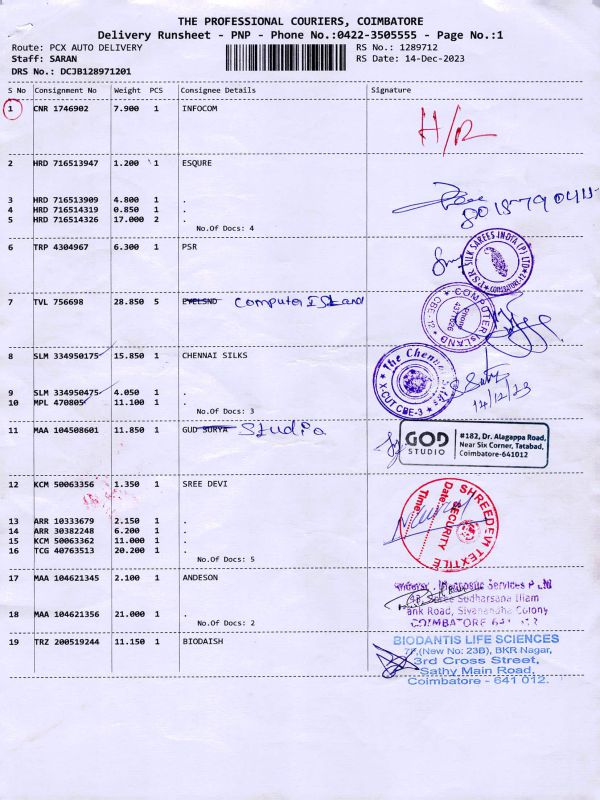 THE PROFESSIONAL COURIERS, COIMBATORE
Delivery Runsheet - PNP - Phone No.:0422-3505555 - Page No.:1
Route: PCX AUTO DELIVERY RS No.: 1289712
Staff: SARAN RS Date: 14-Dec-2023
DRS No.: DCJB128971201
S No Consignment No Weight PCS Consignee Details Signature
1 CNR 1746902 7.900 1 INFOCOM
H/R
2 HRD 716513947 1.200 1 ESQURE
3 HRD 716513909 4.800 1 .
4 HRD 716514319 0.850 1 .
5 HRD 716514326 17.000 2 .
No.Of Docs: 4
6 TRP 4304967 6.300 1 PSR
P.S.R. SILK SAREES INDIA (P) LTD
7 TVL 756698 28.850 5 EVELSND Computer Island
COMPUTER ISLAND
CBE-12
Phone
4371626
8 SLM 334950175 15.850 1 CHENNAI SILKS
The Chennai Silks
X-CUT CBE-3
14/12/23
9 SLM 334950475 4.050 1 .
10 MPL 470805 11.100 1 .
No.Of Docs: 3
11 MAA 104508601 11.850 1 GUD SURYA Studio
GOD STUDIO
#182, Dr. Alagappa Road,
Near Six Corner, Tatabad,
Coimbatore-641012
12 KCM 50063356 1.350 1 SREE DEVI
SHREEDEVI TEXTILE
SECURITY
Date:
Time:
13 ARR 10333679 2.150 1 .
14 ARR 30382248 6.200 1 .
15 KCM 50063362 11.000 1 .
16 TCG 40763513 20.200 1 .
No.Of Docs: 5
17 MAA 104621345 2.100 1 ANDESON
Services P Ltd
Sudharsana Illam
Bank Road, Sivanandha Colony
COIMBATORE
18 MAA 104621356 21.000 1 .
No.Of Docs: 2
19 TRZ 200519244 11.150 1 BIODAISH
BIODANTIS LIFE SCIENCES
7F,(New No: 23B), BKR Nagar,
3rd Cross Street,
Sathy Main Road,
Coimbatore - 641 012.